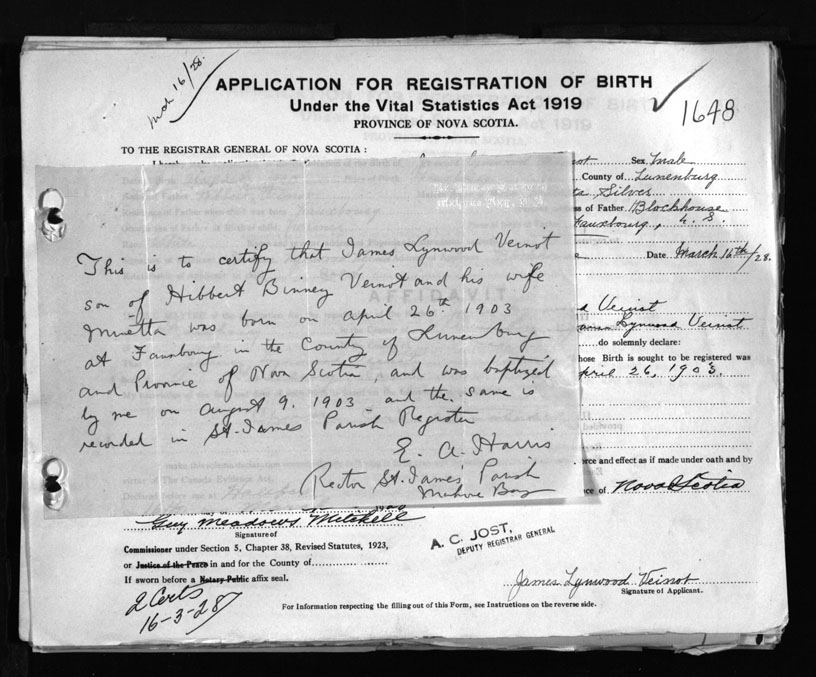 Mch 16/28.
APPLICATION FOR REGISTRATION OF BIRTH
Under the Vital Statistics Act 1919
PROVINCE OF NOVA SCOTIA.
1648
TO THE REGISTRAR GENERAL OF NOVA SCOTIA :
Sex Male
County of Lunenburg
Silver
of Father Blockhouse
N. S.
Date March 16th/28.
This is to certify that James Lynwood Veinot
son of Hibbert Binney Veinot and his wife
was born on April 26th 1903
at Fauxbourg in the County of Lunenburg
and Province of Nova Scotia, and was baptized
by me on August 9. 1903 and the same is
recorded in St. James Parish Register
E. A. Harris
Rector St. James' Parish
Mahone Bay
AFFIDAVIT
Veinot
Lynwood Veinot
do solemnly declare:
hose Birth is sought to be registered was
April 26, 1903.
rce and effect as if made under oath and by
virtue of The Canada Evidence Act.
ce of Nova Scotia
Guy Meadows Mitchell
Signature of
Commissioner under Section 5, Chapter 38, Revised Statutes, 1923,
or Justice of the Peace in and for the County of
If sworn before a Notary Public affix seal.
A. C. JOST,
DEPUTY REGISTRAR GENERAL
2 Certs
16-3-28
James Lynwood Veinot
Signature of Applicant.
For Information respecting the filling out of this Form, see Instructions on the reverse side.